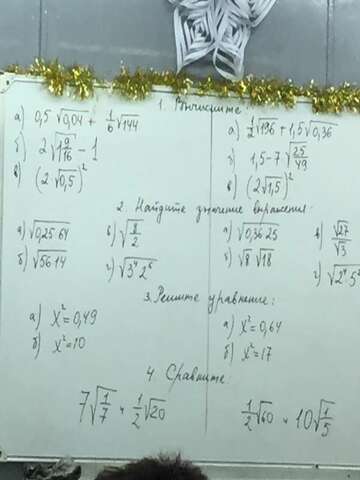 1. Вычислите:
а) 0,5 √0,04 + 1/6 √144
б) 2 √(1 9/16) - 1
в) (2 √0,5)²
а) 1/2 √196 + 1,5 √0,36
б) 1,5 - 7 √(25/49)
в) (2 √1,5)²
2. Найдите значение выражения:
а) √(0,25·64) в) √(8/2)
б) √(56·14) г) √(3⁴·2⁶)
а) √(0,36·25) в) √27/√3
б) √8·√18 г) √(2⁴·5²
3. Решите уравнение:
а) x² = 0,49
б) x² = 10
а) x² = 0,64
б) x² = 17
4. Сравните:
7√(1/7) и 1/2 √20
1/2 √60 и 10√(1/5)